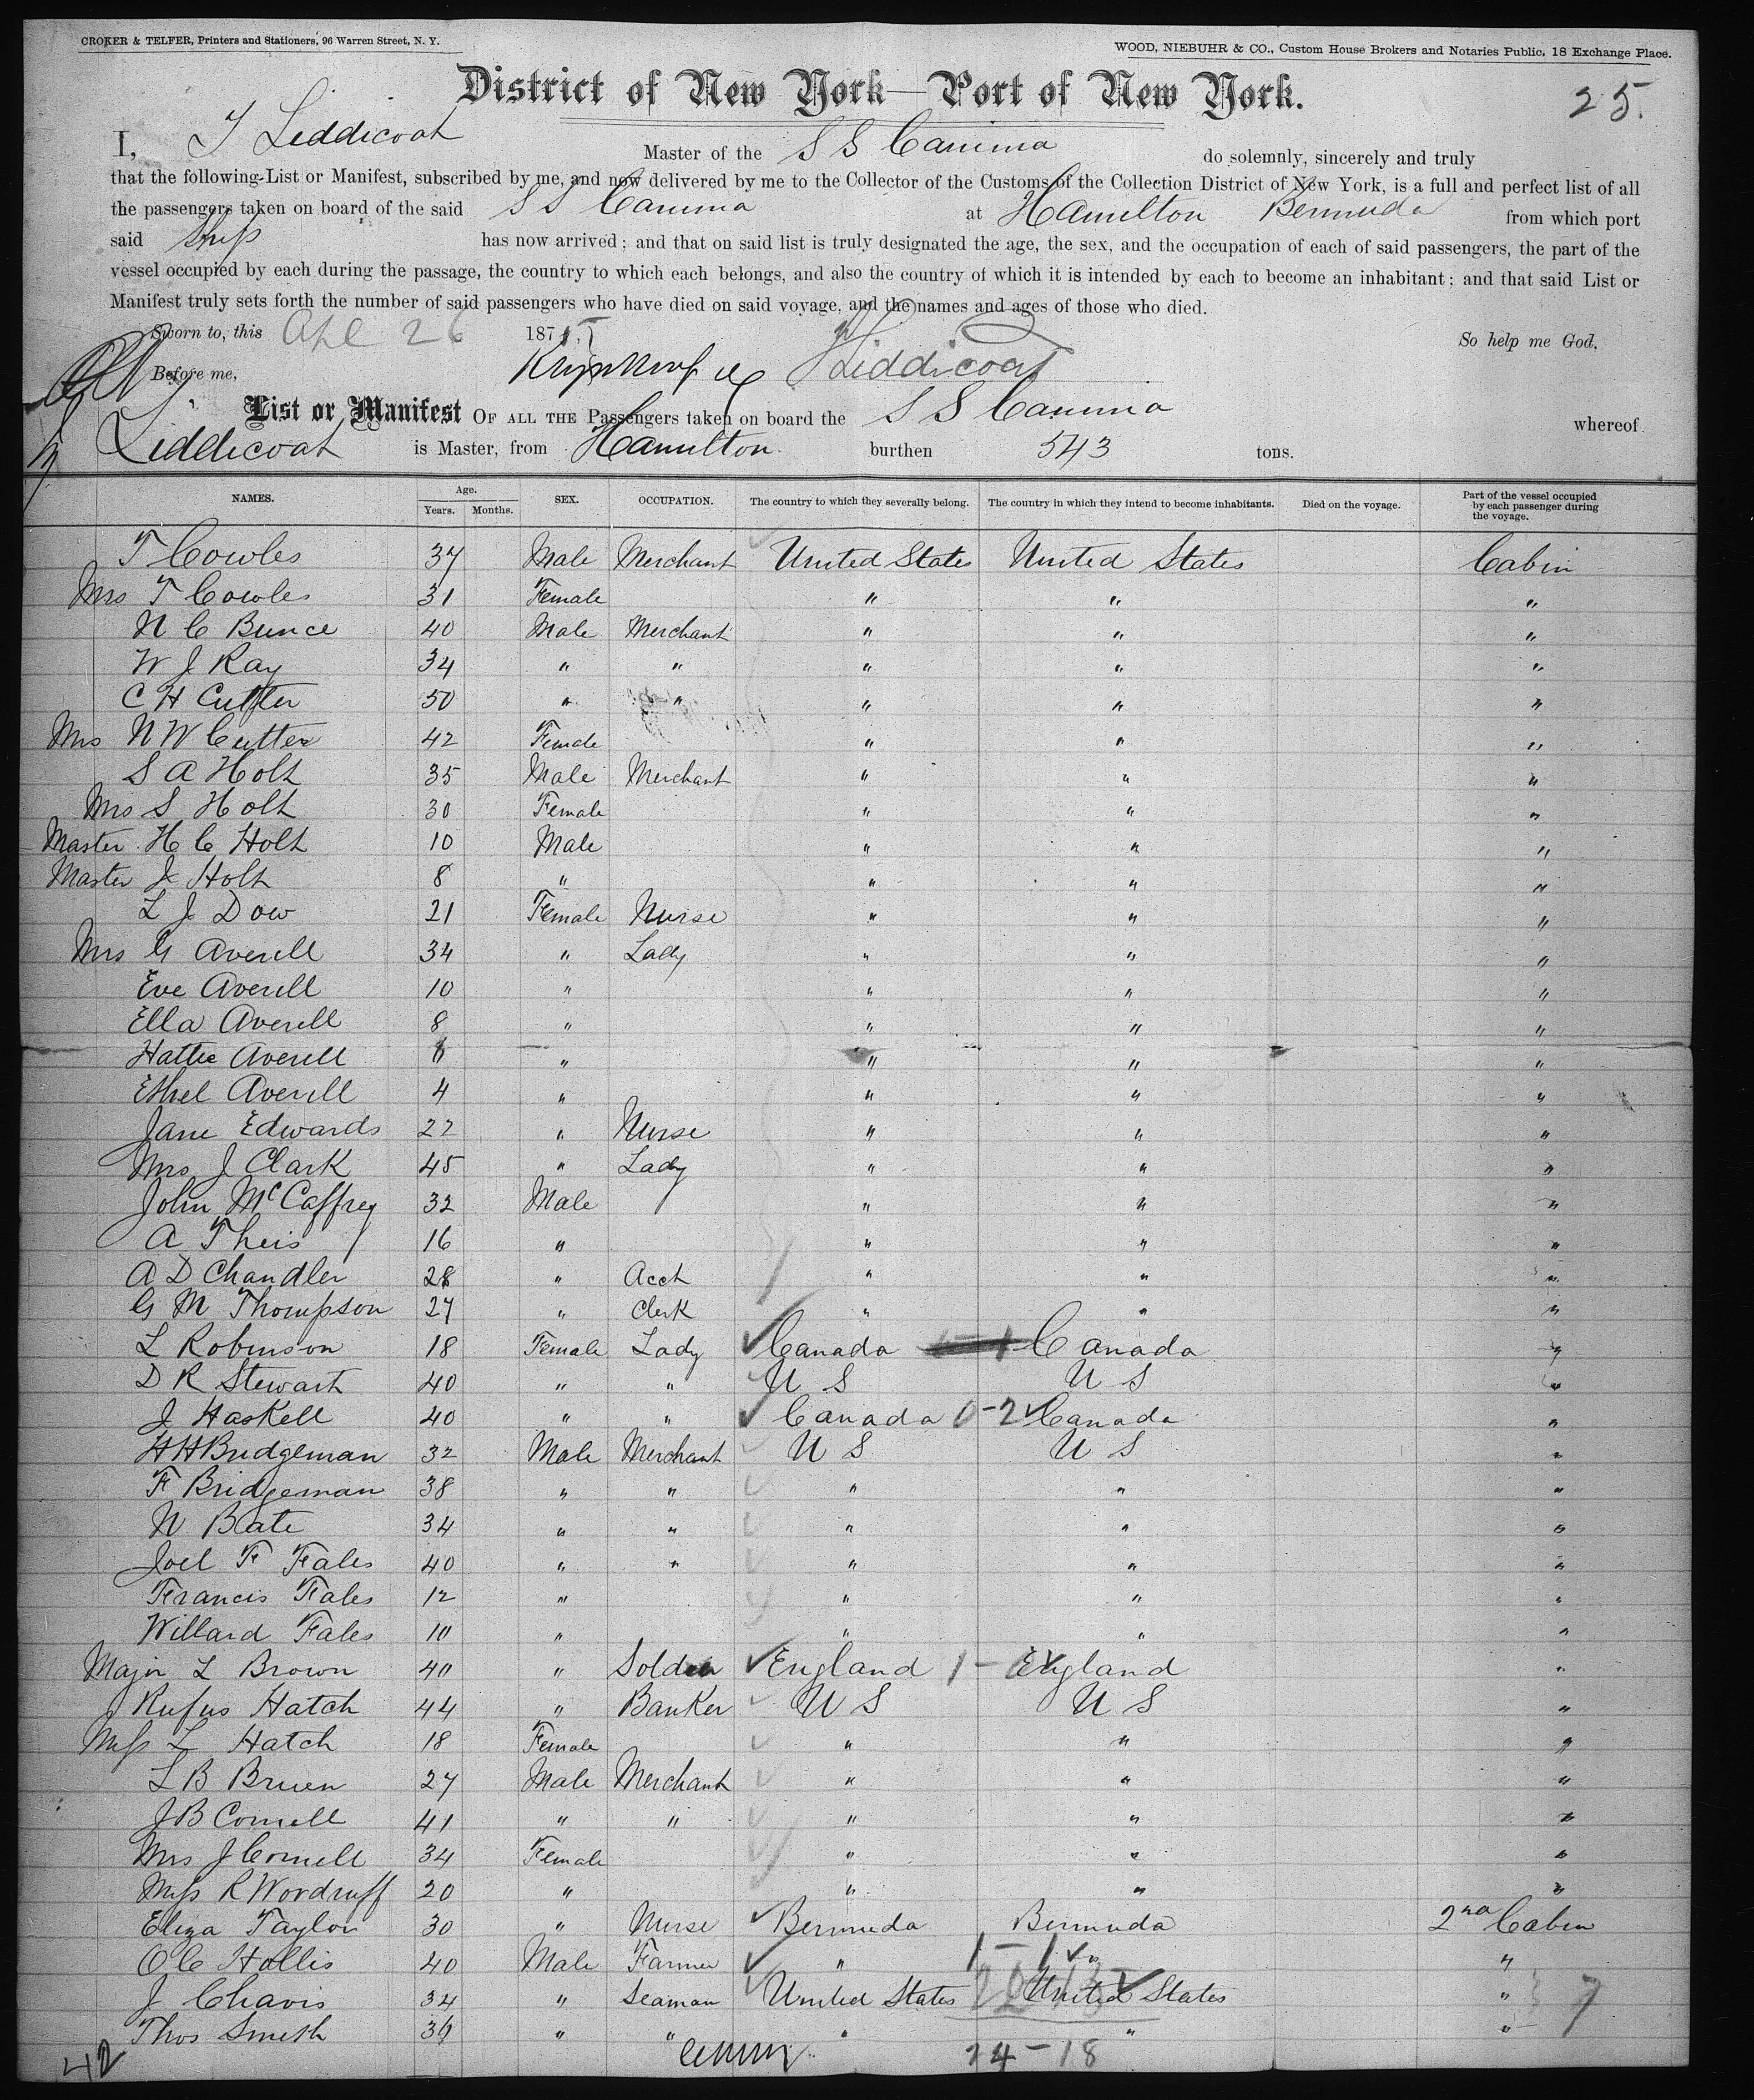 CROKER & TELFER, Printers and Stationers, 96 Warren Street, N. Y.
WOOD, NIEBUHR & CO., Custom House Brokers and Notaries Public, 18 Exchange Place.
District of New York—Port of New York.
25.
I, J Liddicoat Master of the S S Camima do solemnly, sincerely and truly
that the following List or Manifest, subscribed by me, and now delivered by me to the Collector of the Customs of the Collection District of New York, is a full and perfect list of all
the passengers taken on board of the said S S Camima at Hamilton Bermuda from which port
said Ship has now arrived; and that on said list is truly designated the age, the sex, and the occupation of each of said passengers, the part of the
vessel occupied by each during the passage, the country to which each belongs, and also the country of which it is intended by each to become an inhabitant; and that said List or
Manifest truly sets forth the number of said passengers who have died on said voyage, and the names and ages of those who died.
Sworn to, this Apl 26 187 So help me God,
Before me, Liddicoat
List or Manifest OF ALL THE Passengers taken on board the S S Camima whereof
Liddicoat is Master, from Hamilton burthen 543 tons.
NAMES. Age. Years. Months. SEX. OCCUPATION. The country to which they severally belong. The country in which they intend to become inhabitants. Died on the voyage. Part of the vessel occupied by each passenger during the voyage.
T Cowles 37 Male Merchant United States United States Cabin
Mrs T Cowles 31 Female " " "
N C Bunce 40 Male Merchant " " "
W J Ray 34 " " " " "
C H Cutter 50 " " " " "
Mrs N W Cutter 42 Female " " "
S A Holt 35 Male Merchant " " "
Mrs S Holt 30 Female " " "
Master H C Holt 10 Male " " "
Master J Holt 8 " " " "
L J Dow 21 Female Nurse " " "
Mrs G Averell 34 " Lady " " "
Eve Averell 10 " " " "
Ella Averell 8 " " " "
Hattie Averell " " " "
Ethel Averell 4 " " " "
Jane Edwards 22 " Nurse " " "
Mrs J Clark 45 " Lady " " "
John McCaffrey 32 Male " " "
A Theis 16 " " " "
A D Chandler 28 " Acct " " "
G M Thompson 27 " Clerk " " "
L Robinson 18 Female Lady Canada Canada "
D R Stewart 40 " " U S U S "
J Haskell 40 " " Canada 0-2 Canada "
H H Bridgeman 32 Male Merchant U S U S "
F Bridgeman 38 " " " " "
N Bate 34 " " " " "
Joel F Fales 40 " " " " "
Francis Fales 12 " " " "
Willard Fales 10 " " " "
Major L Brown 40 " Soldier England 1-0 England "
J Rufus Hatch 44 " Banker U S U S "
Miss L Hatch 18 Female " " "
L B Bruen 27 Male Merchant " " "
J B Cornell 41 " " " " "
Mrs J Cornell 34 Female " " "
Miss R Wordruff 20 " " " "
Eliza Taylor 30 " Nurse Bermuda Bermuda 2nd Cabin
O C Hollis 40 Male Farmer " 1-1 " "
J Chavis 34 " Seaman United States United States "
Thos Smith 36 " " " " "
42
24-18
7